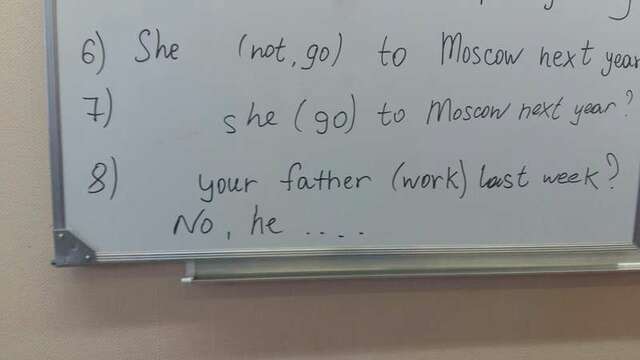 6) She (not, go) to Moscow next year
7) she (go) to Moscow next year?
8) your father (work) last week?
No, he ....